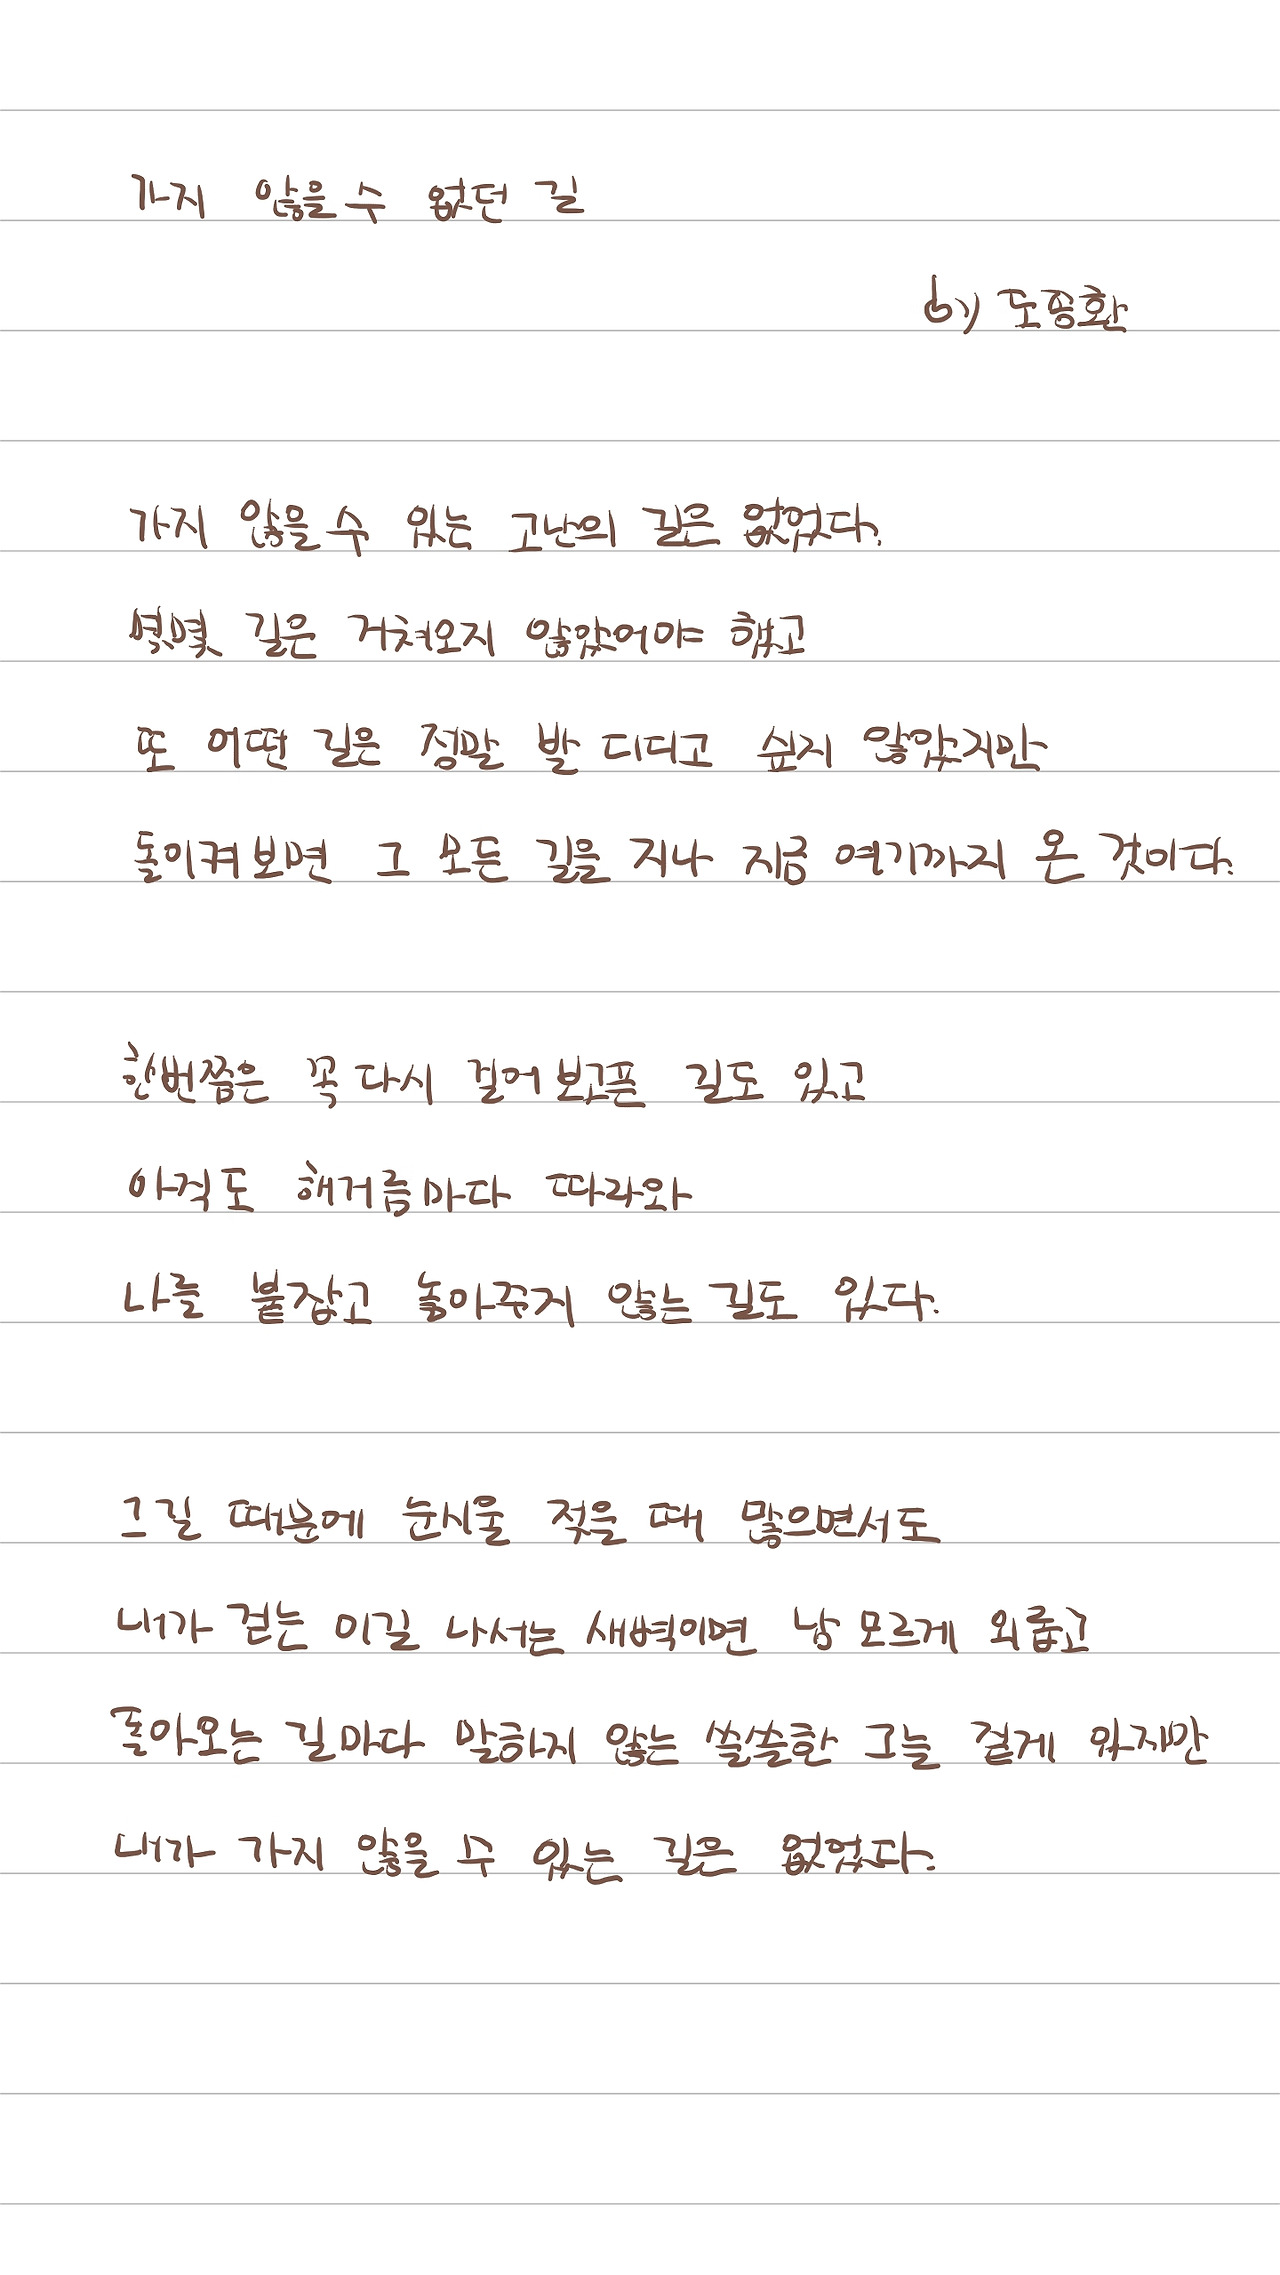 가지 않을 수 없던 길
by 도종환
가지 않을 수 있는 고난의 길은 없었다.
몇몇 길은 거쳐오지 않았어야 했고
또 어떤 길은 정말 발 디디고 싶지 않았지만
돌이켜보면 그 모든 길을 지나 지금 여기까지 온 것이다.
한번쯤은 꼭 다시 걸어보고픈 길도 있고
아직도 해거름마다 따라와
나를 붙잡고 놓아주지 않는 길도 있다.
그길 때문에 눈시울 젖을 때 많으면서도
내가 걷는 이길 나서는 새벽이면 남 모르게 외롭고
돌아오는 길마다 말하지 않는 쓸쓸한 그늘 짙게 있지만
내가 가지 않을 수 있는 길은 없었다.